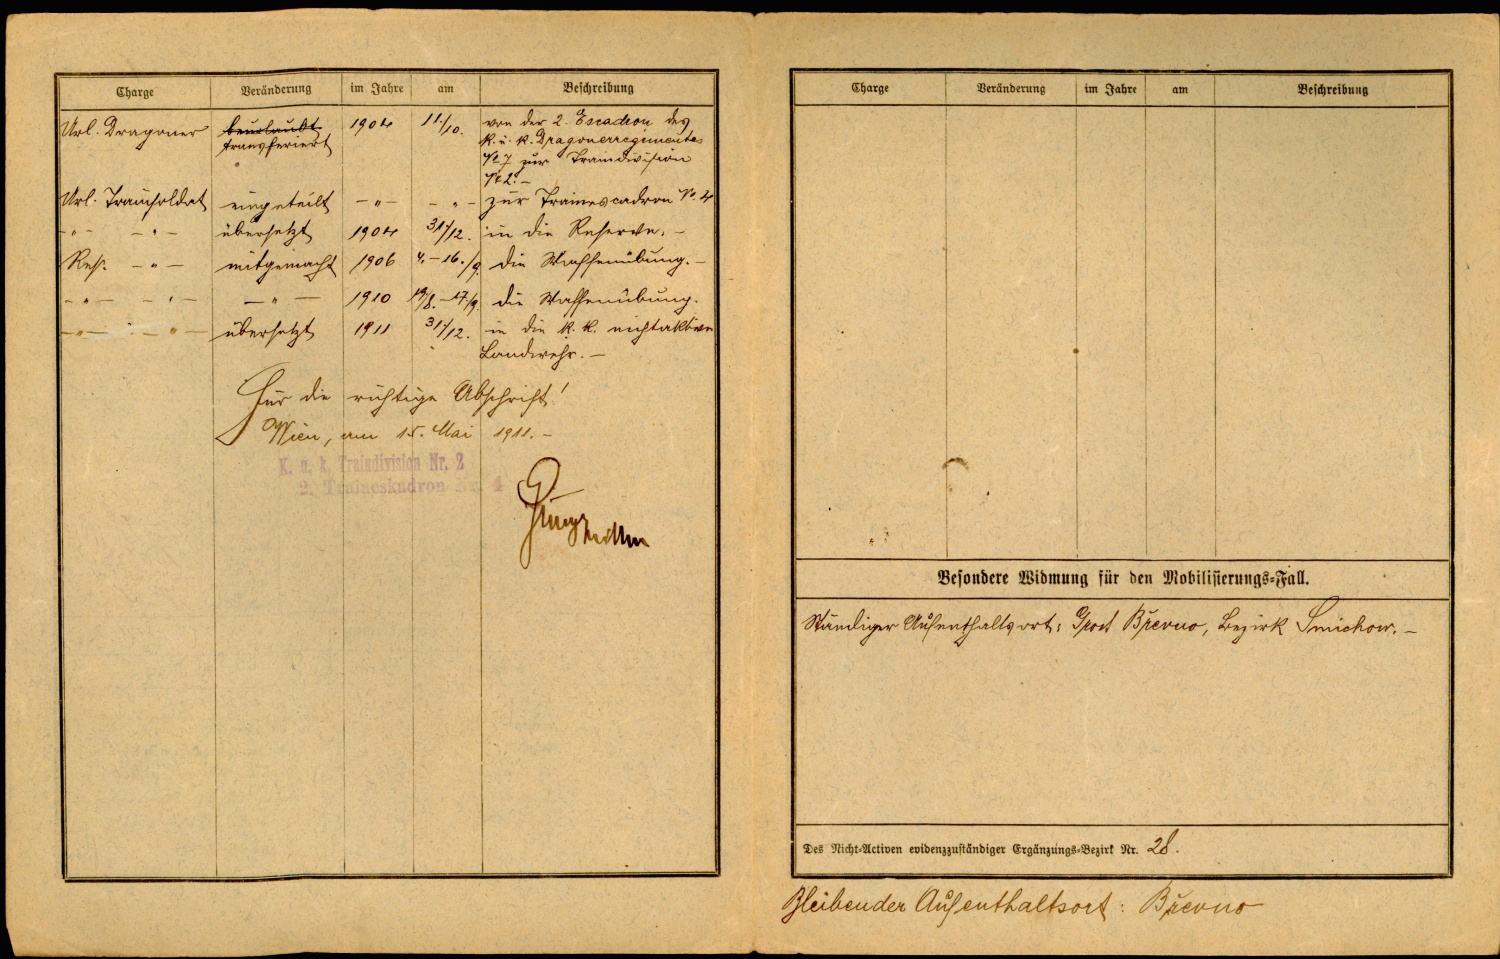 Charge Veränderung im Jahre am Beschreibung
Url. Dragoner beurlaubt 1904 11./10. von der 2. Escadron des
transferiert k. u. k. Dragonerregimentes
№ 7 zur Traindivision
№ 2. –
Url. Trainsoldat eingeteilt – " – – " – zur Trainescadron № 4
– " – – " – übersetzt 1904 31/12. in die Reserve. –
Res. – " – mitgemacht 1906 4. – 16./9. die Waffenübung. –
– " – – " – – " – 1910 19/8. – 17/9. die Waffenübung.
– " – – " – übersetzt 1911 31/12. in die k. k. nichtaktive
Landwehr. –
Für die richtige Abschrift!
Wien, am 15. Mai 1911. –
K. u. k. Traindivision Nr. 2
2. Traineskadron Nr. 4
Charge Veränderung im Jahre am Beschreibung
Besondere Widmung für den Mobilisierungs-Fall.
Ständiger Aufenthaltsort: Post Břevno, Bezirk Smichow. –
Des Nicht-Activen evidenzzuständiger Ergänzungs-Bezirk Nr. 28.
Bleibender Aufenthaltsort: Břevno